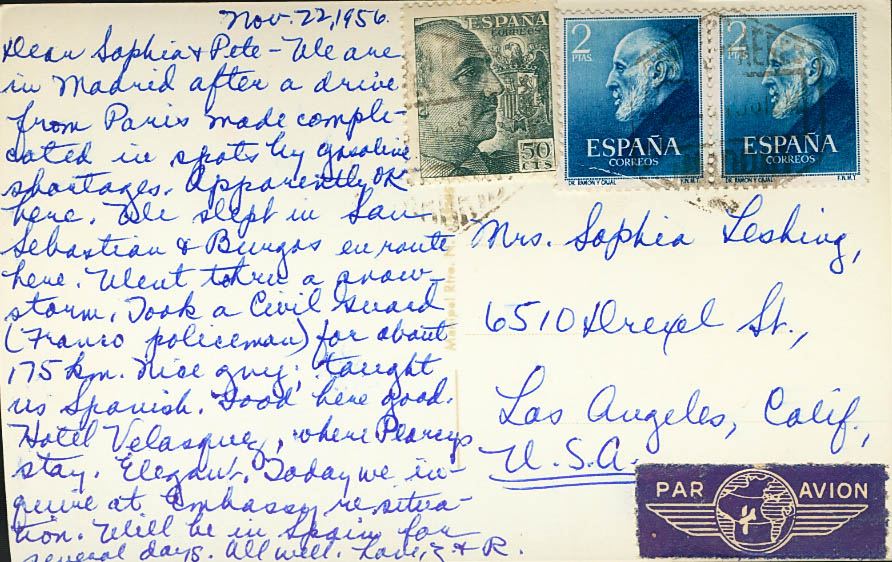 Nov. 22, 1956
Dear Sophia & Pete - We are
in Madrid after a drive
from Paris made compli-
cated in spots by gasoline
shortages. Apparently OK
here. We slept in San
Sebastian & Burgos en route
here. Went thru a snow-
storm. Took a Civil Guard
(Franco policeman) for about
175 km. Nice guy; taught
us Spanish. Food here good.
Hotel Velasquez, where Pearcys
stay. Elegant. Today we in-
quire at Embassy re situa-
tion. Will be in Spain for
several days. All well. Love, & R.
ESPAÑA
CORREOS
50
CTS
2
PTAS.
ESPAÑA
CORREOS
DR. RAMON Y CAJAL
F.N.M.T
2
PTAS.
ESPAÑA
CORREOS
DR. RAMON Y CAJAL
F.N.M.T
Mrs. Sophia Leshing,
6510 Drexel St.,
Los Angeles, Calif.,
U.S.A.
PAR AVION